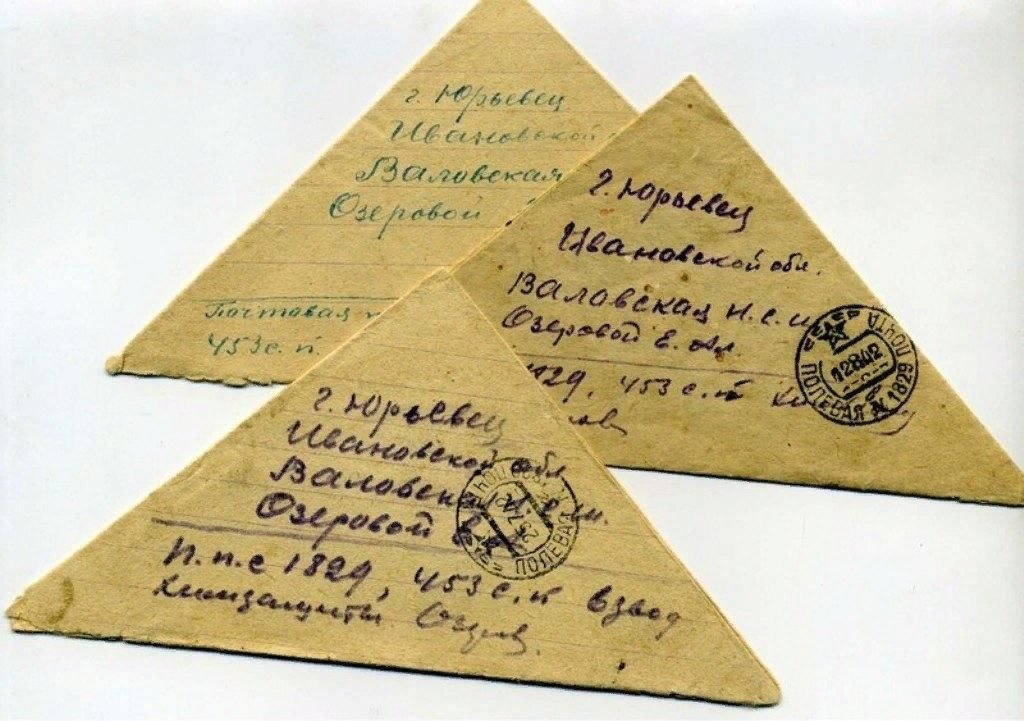 г. Юрьевец
Ивановской
Валовская
Озеровой
Почтовая
453 с. п.
г. Юрьевец
Ивановской обл.
Валовская н.с.ш.
Озеровой Е. Ал.
1829, 453 с. п
ПОЛЕВАЯ ПОЧТА
1829
г. Юрьевец
Ивановской обл
Валовская н.с.ш.
Озеровой Е
П.п.с 1829, 453 с. п взвод
химзащиты Озеров.
ПОЛЕВАЯ